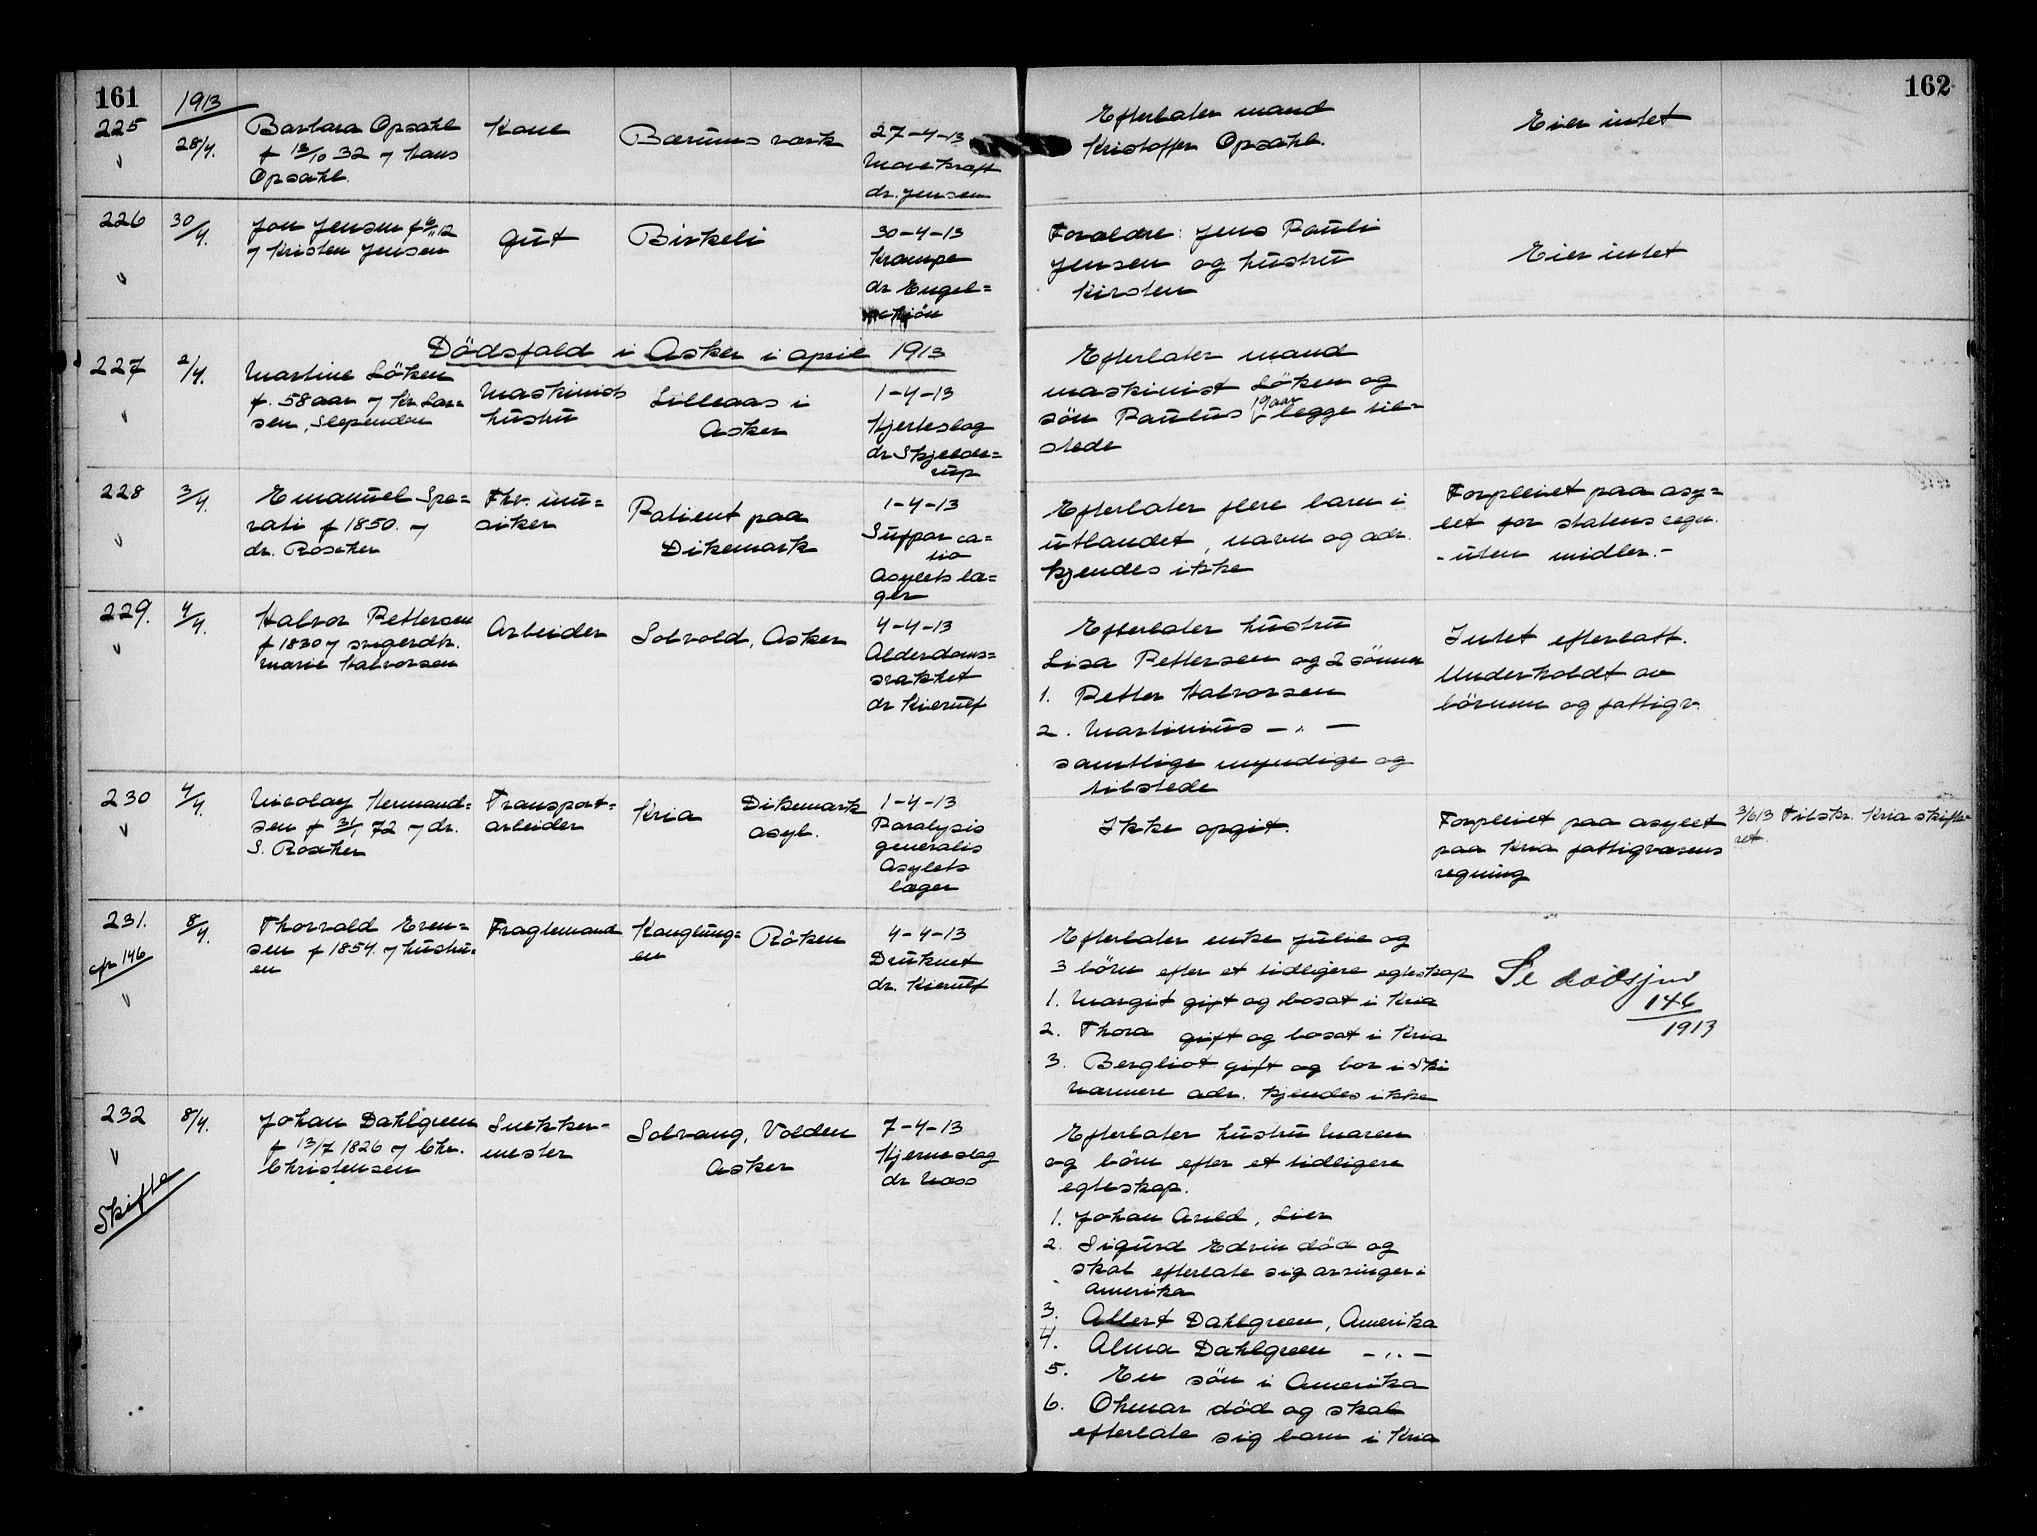 161
162
1913
225
28/4.
Barbara Opsahl
f 13/10 32 y Hans
Opsahl.
Kone
Bærums verk
27-4-13
Marekraft
dr. Jensen
Efterlater mand
Kristoffer Opsahl.
Eier intet
226
30/4.
Jon Jensen f 6/11 12
y Kristen Jensen
Gut
Birkeli
30-4-13
Krampe
dr Engel=
schiön
Forældre: Jens Pauli
Jensen og hustru
Kirsten
Eier intet
Dödsfald i Asker i april 1913
227
2/4.
Martine Löken
f. 58 aar y Kr. Lar=
sen, Slependen
Maskinists
hustru
Lilleaas i
Asker
1-4-13
Hjerteslag
dr Skjelde=
rup
Efterlater mand
maskinist Löken og
sön Paulus 19 aar begge til=
stede
228
3/4.
Emanuel Spe=
rati f 1850. y
dr. Roscher
Fhv. mu=
siker
Patient paa
Dikemark
1-4-13
Suffoca=
tio
Asylets læ=
ger
Efterlater flere barn i
utlandet, navn og adr.
kjendes ikke
Forpleiet paa asy=
let for statens regn.
- uten midler. -
229.
4/4.
Halvor Pettersen
f 1830 y svigerdtr.
Marie Halvorsen
Arbeider
Solvold, Asker
4-4-13
Alderdoms=
svakhet
dr Kierulf
Efterlater hustru
Lisa Pettersen og 2 sönner
1. Petter Halvorsen
2. Martinius - „ -
samtlige myndige og
tilstede
Intet efterlatt.
Underholdt av
börnene og fattigv.
230
4/4.
Nicolay Hermand=
sen f 31/1 72 y dr.
S. Roscher
Transport=
arbeider
Kria
Dikemark
asyl.
1-4-13
Paralysis
generalis
Asylets
læger
Ikke opgit.
Forpleiet paa asylet
paa Kria fattigvæsens
regning
3/6 13 Tilskr. Kria skifte=
ret.
231.
cfr 146
8/4.
Thorvald Even=
sen f 1854. y hustru=
en
Fragtemand
Konglung=
en
Röken
4-4-13
Druknet
dr. Kierulf
Efterlater enke Julie og
3 börn efter et tidligere egteskap
1. Margit gift og bosat i Kria
2. Thora gift og bosat i Kria
3. Bergliot gift og bor i Ski
nærmere adr. kjendes ikke
Se dödsjnr
146
1913
232
Skifte
8/4.
Johan Dahlgreen
f 13/7 1826 y Chr.
Christensen
Snekker-
mester
Solvang, Volden
Asker
7-4-13
Hjerneslag
dr Næss
Efterlater hustru Maren
og börn efter et tidligere
egteskap.
1. Johan Arild, Lier
2. Sigurd Edvin död og
skal efterlate sig arvinger i
Amerika
3. Albert Dahlgreen, Amerika
4. Alma Dahlgreen - „ -
5. En sön i Amerika
6. Othmar död og skal
efterlate sig barn i Kria